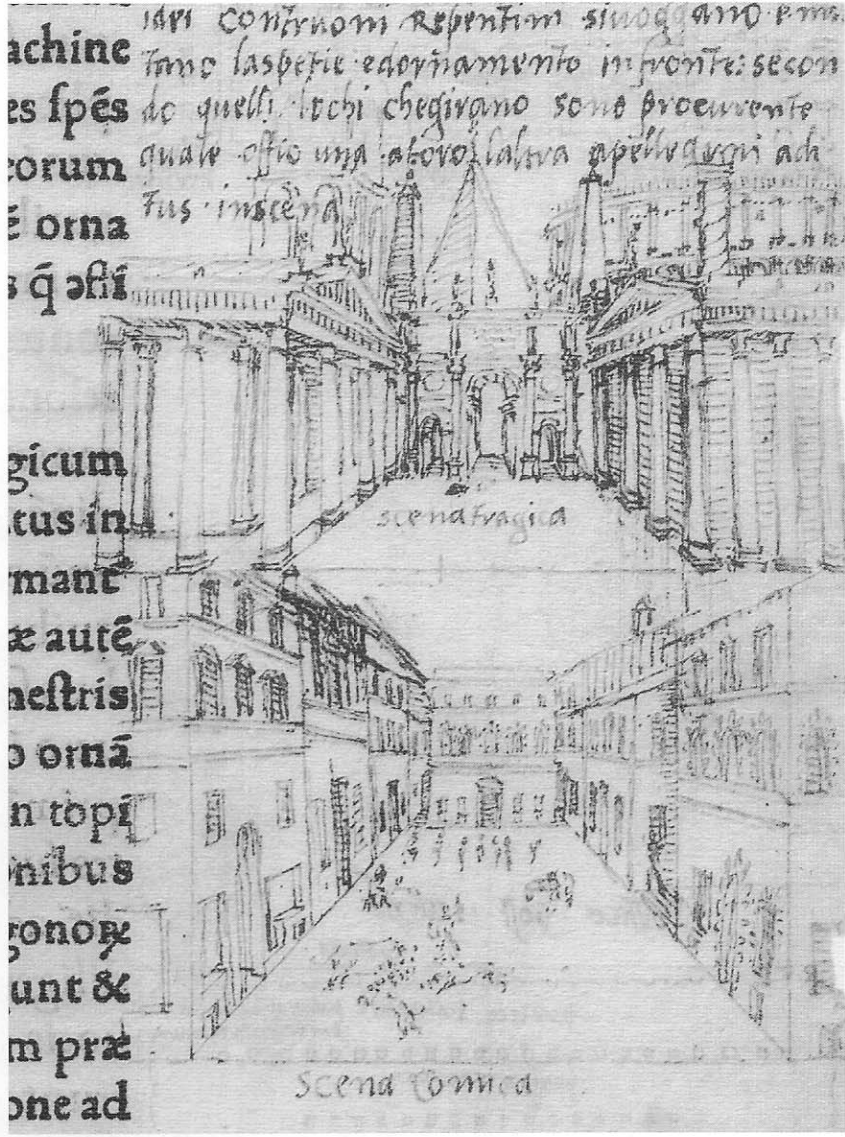 achine
es ſpēs
corum
ē orna
s q̄ ꝯſti
gicum
tus in
rmant
æ autē
neſtris
o ornā
n topi
onibus
gonoꝝ
unt &
m præ
one ad
idei contrvoni Repentini si
tano laspetie edornamento infronte: secon
do quelli lochi chegirano sono procurente
quale offio una aforo laltra apellegrni adi
tus inscena
scena tragica
Scena Comica